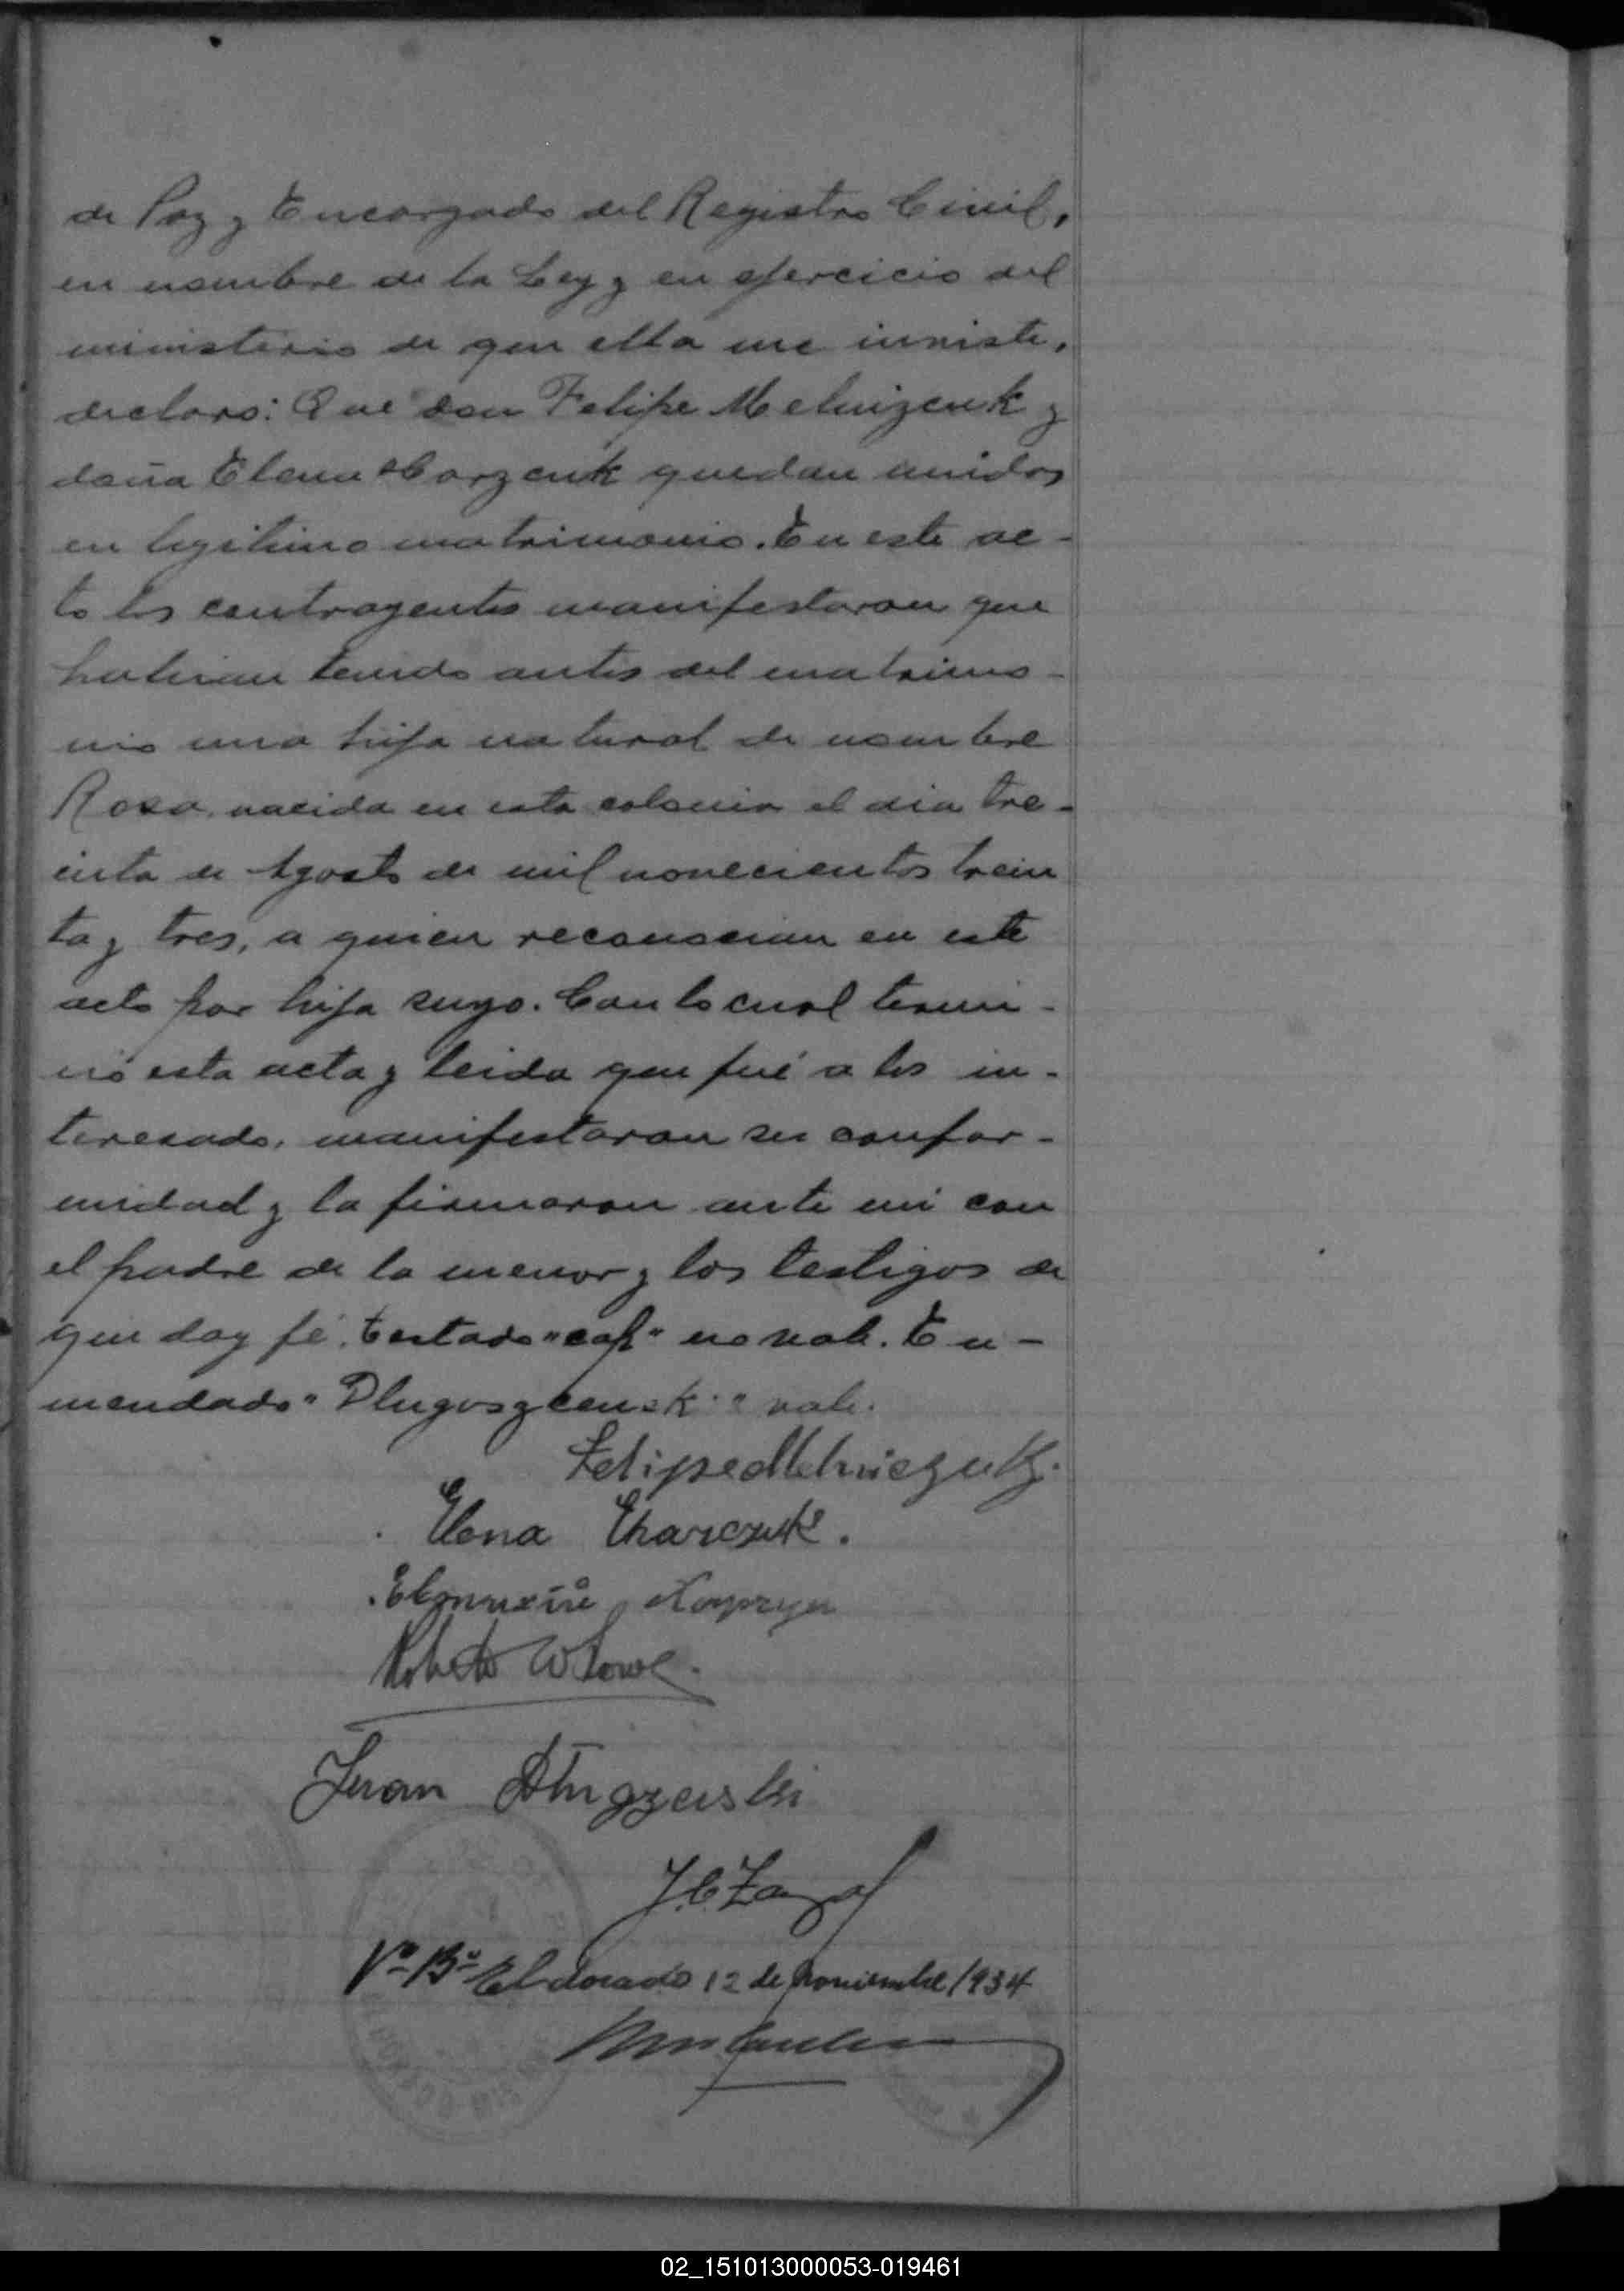 de Paz y Encargado del Registro Civil,
en nombre de la Ley y en ejercicio del
ministerio de que ella me inviste,
declaro: Que don Felipe Melnizenk y
doña Elena Harzenk quedan unidos
en legitimo matrimonio. En este ac-
to los contrayentes manifestaron que
habian tenido antes del matrimo-
nio una hija natural de nombre
Rosa, nacida en esta colonia el dia tre-
inta de Agosto de mil novecientos trein
ta y tres, a quien reconocian en este
acto por hija suya. Con lo cual termi-
nó esta acta y leida que fué a los in-
teresado, manifestaron su confor-
midad y la firmaron ante mi con
el padre de la menor y los testigos de
que doy fé. Testado "caf" no vale. En-
mendado "Dlugoszcenski" vale.
Felipe Melniczuk.
Elena Charczuk.
Roberto W Lowe.
Juan
J.C. Z
Vº Bº Eldorado 12 de noviembre/934